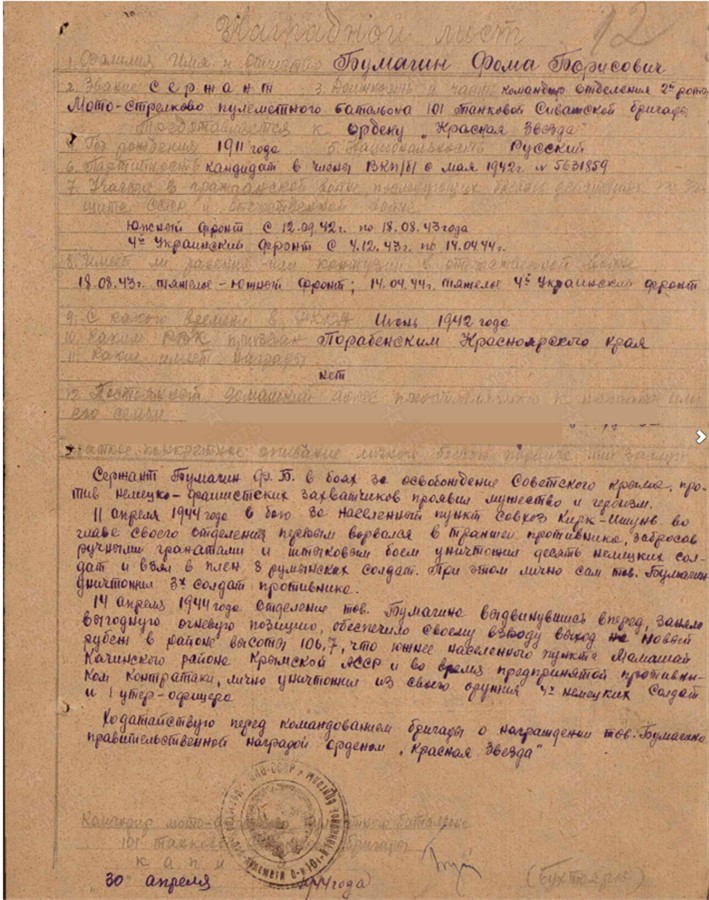 Наградной лист
12
1. Фамилия Имя и Отчество Бумагин Фома Борисович
2. Звание сержант 3. Должность и часть командир отделения 2ой роты
Мото-стрелково пулеметного батальона 101 танковой Сивашской бригады
Представляется к ордену „Красная Звезда"
4. Год рождения 1911 года 5. Национальность Русский
6. Партийность кандидат в члены ВКП/б/ с мая 1942г. № 5631859
7. Участие в гражданской войне, последующих боевых действиях по за-
щите СССР и отечественной войне
Южный фронт с 12.09.42г. по 18.08.43 года
4й Украинский фронт с 4.12.43г. по 14.04.44г.
8. Имеет ли ранения или контузии в отечественной войне
18.08.43г. тяжелое - Южный фронт; 14.04.44г. тяжелое 4й Украинский фронт
9. С какого времени в РККА Июнь 1942 года
10. Каким РВК призван Красноярского края
11. Какие имеет награды
нет
12. Постоянный домашний адрес представляемого к награде или
его семьи
Краткое конкретное описание личного боевого подвига или заслуг
Сержант Бумагин Ф.Б. в боях за освобождение Советского Крыма, про-
тив немецко-фашистских захватчиков проявил мужество и героизм.
11 апреля 1944 года в бою за населенный пункт совхоз Кирк-Ишунь во
главе своего отделения первым ворвался в траншеи противника, забросав
ручными гранатами и штыковым боем уничтожил десять немецких сол-
дат и взял в плен 8 румынских солдат. При этом лично сам тов. Бумагин
уничтожил 3х солдат противника.
14 апреля 1944 года отделение тов. Бумагина выдвинувшись вперед, заняло
выгодную огневую позицию, обеспечило своему взводу выход на новый
рубеж в районе высоты 106,7, что южнее населенного пункта Мамашай
Качинского района Крымской АССР и во время предпринятой противни-
ком контратаки, лично уничтожил из своего оружия 4х немецких солдат
и 1 унтер-офицера
Ходатайствую перед командованием бригады о награждении тов. Бумагина
правительственной наградой орденом „Красная Звезда"
Командир мото- батальона
101 танковой бригады
капи
30 апреля 1944 года